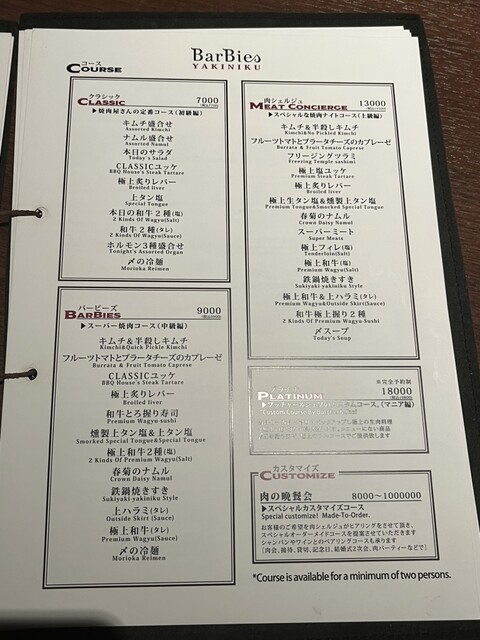 BarBies
YAKINIKU
コース
COURSE
クラシック
CLASSIC 7000
▶焼肉屋さんの定番コース(初級編)
キムチ盛合せ
Assorted Kimchi
ナムル盛合せ
Assorted Namul
本日のサラダ
Today's Salad
CLASSICユッケ
BBQ House's Steak Tartare
極上炙りレバー
Broiled liver
上タン塩
Special Tongue
本日の和牛2種(塩)
2 Kinds Of Wagyu(Salt)
和牛2種(タレ)
2 Kinds Of Wagyu(Sauce)
ホルモン3種盛合せ
Tonight's Assorted Organ
〆の冷麺
Morioka Reimen
バービーズ
BARBIES 9000
▶スーパー焼肉コース(中級編)
キムチ&半殺しキムチ
Kimchi&Quick Pickle Kimchi
フルーツトマトとブラータチーズのカプレーゼ
Burrata & Fruit Tomato Caprese
CLASSICユッケ
BBQ House's Steak Tartare
極上炙りレバー
Broiled liver
和牛とろ握り寿司
Premium Wagyu-sushi
燻製上タン塩&上タン塩
Smorked Special Tongue&Special Tongue
極上和牛2種(塩)
2 Kinds Of Premium Wagyu(Salt)
春菊のナムル
Crown Daisy Namul
鉄鍋焼きすき
Sukiyaki-yakiniku Style
上ハラミ(タレ)
Outside Skirt (Sauce)
極上和牛(タレ)
Premium Wagyu(Sauce)
〆の冷麺
Morioka Reimen
肉シェルジュ
MEAT CONCIERGE 13000
▶スペシャルな焼肉ナイトコース(上級編)
キムチ&半殺しキムチ
Kimchi&No Pickled Kimchi
フルーツトマトとブラータチーズのカプレーゼ
Burrata & Fruit Tomato Caprese
フリージングツラミ
Freezing Temple sashimi
極上塩ユッケ
Premium Steak Tartare
極上炙りレバー
Broiled liver
極上生タン塩&燻製上タン塩
Premium Tongue&Smorked Special Tongue
春菊のナムル
Crown Daisy Namul
スーパーミート
Super Meats
極上フィレ(塩)
Tenderloin(Salt)
極上和牛(塩)
Premium Wagyu(Salt)
鉄鍋焼きすき
Sukiyaki-yakiniku Style
極上和牛&上ハラミ(タレ)
Premium Wagyu&Outside Skirt(Sauce)
和牛極上握り2種
2 Kinds Of Premium Wagyu-Sushi
〆スープ
Today's Soup
※完全予約制
PLATINUM 18000
カスタマイズ
CUSTOMIZE
肉の晩餐会 8000〜1000000
▶スペシャルカスタマイズコース
Special customize! Made-To-Order.
お客様のご希望を肉シェルジュがヒアリングをさせて頂き、
スペシャルオーダーメイドコースを提案させていただきます
シャンパンやワインとのペアリングコースも承ります
[肉会、接待、貸切、記念日、結婚式2次会、肉パーティーなどで]
*Course is available for a minimum of two persons.